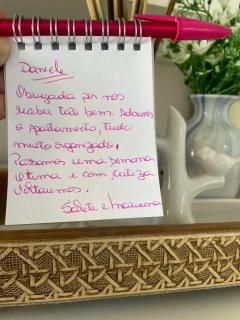 Daniele
Obrigada por nos
receber tão bem. Adoramos
o Apartamento, tudo
muito organizado.
Passamos uma semana
ótima e com certeza
voltaremos.
Salete e Mariana